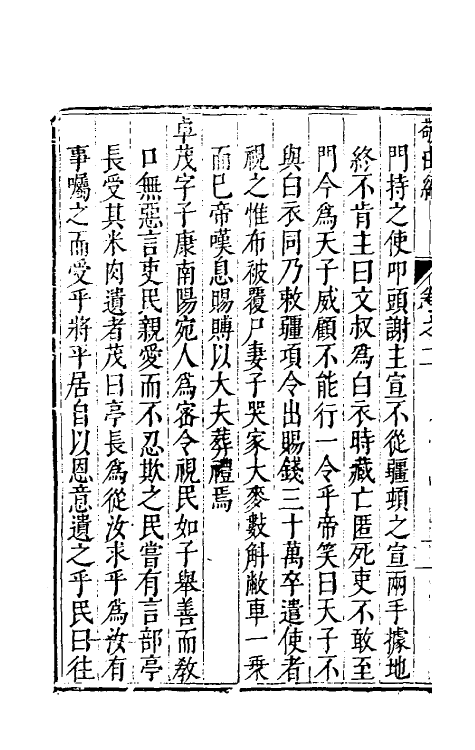 門持之使叩頭謝主宣不從彊頓之宣兩手據地
終不肯主曰文叔為白衣時藏亡匿死吏不敢至
門今為天子威顧不能行一令乎帝笑曰天子不
與白衣同乃敕彊項令出賜錢三十萬卒遣使者
視之惟布被覆尸妻子哭家大麥數斛敝車一乘
而已帝嘆息賜賻以大夫葬禮焉
卓茂字子康南陽宛人為密令視民如子舉善而敎
口無惡言吏民親愛而不忍欺之民嘗有言部亭
長受其米肉遺者茂曰亭長為從汝求乎為汝有
事囑之而受乎將平居自以恩意遺之乎民曰往